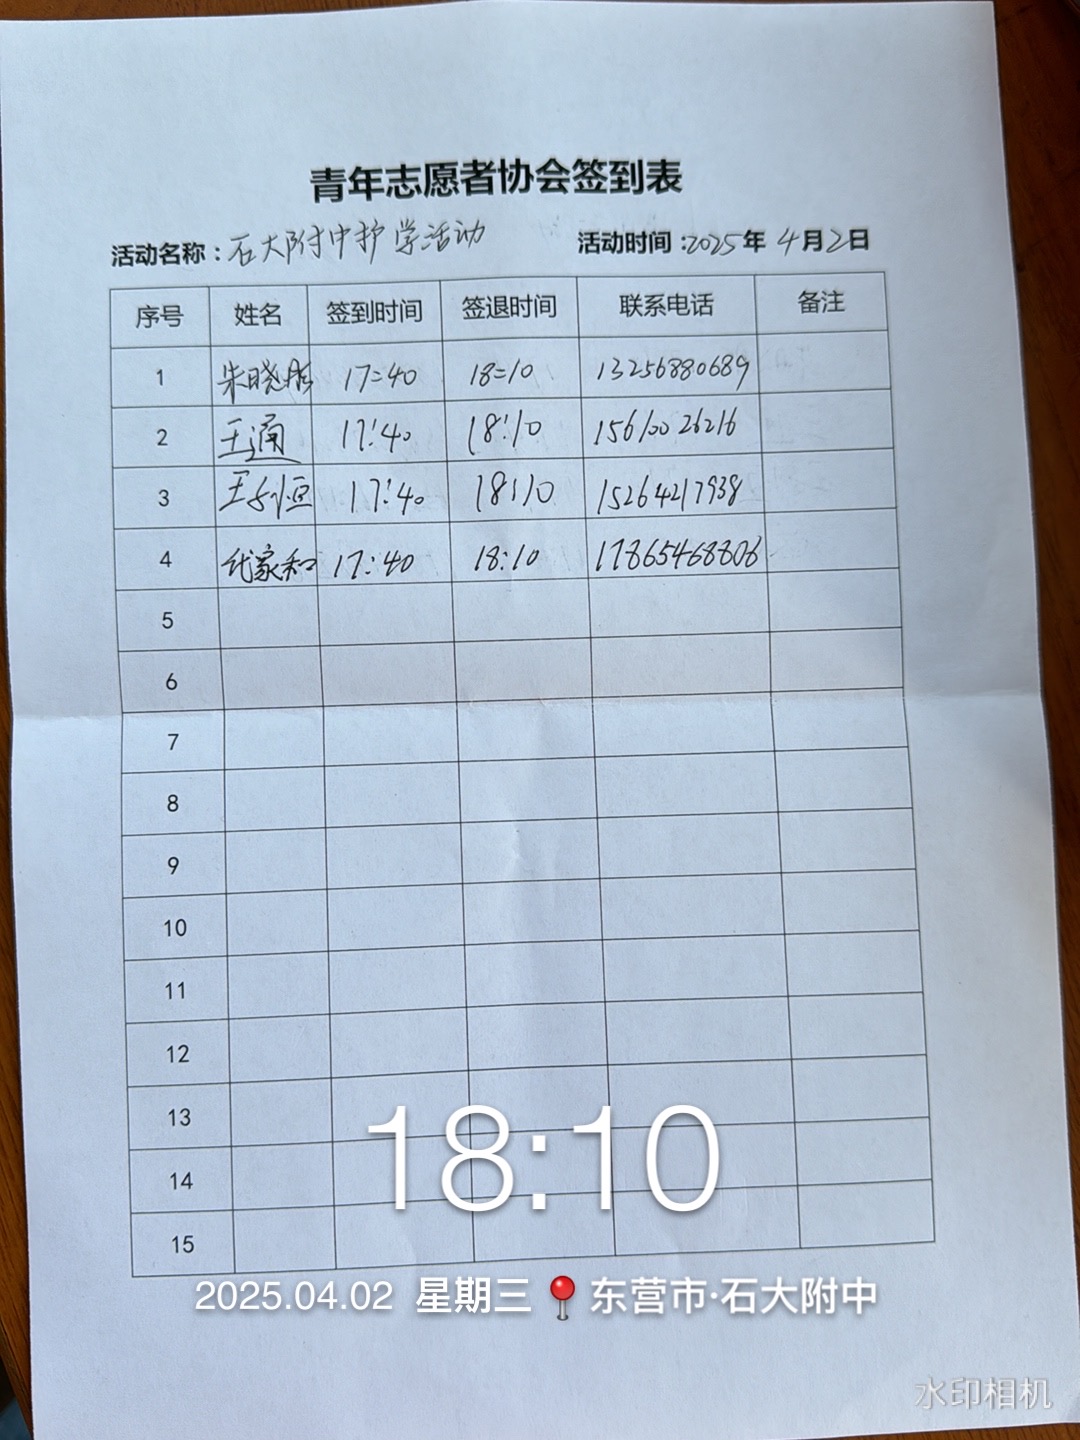 青年志愿者协会签到表
活动名称：石大附中护学活动 活动时间：2025年 4月2日
序号 姓名 签到时间 签退时间 联系电话 备注
1 朱晓彤 17:40 18:10 13256880689
2 王通 17:40 18:10 15610026216
3 王 恒 17:40 18:10 15264217938
4 代家和 17:40 18:10 17865468806
5
6
7
8
9
10
11
12
13
14
15
18:10
2025.04.02 星期三 东营市·石大附中
水印相机